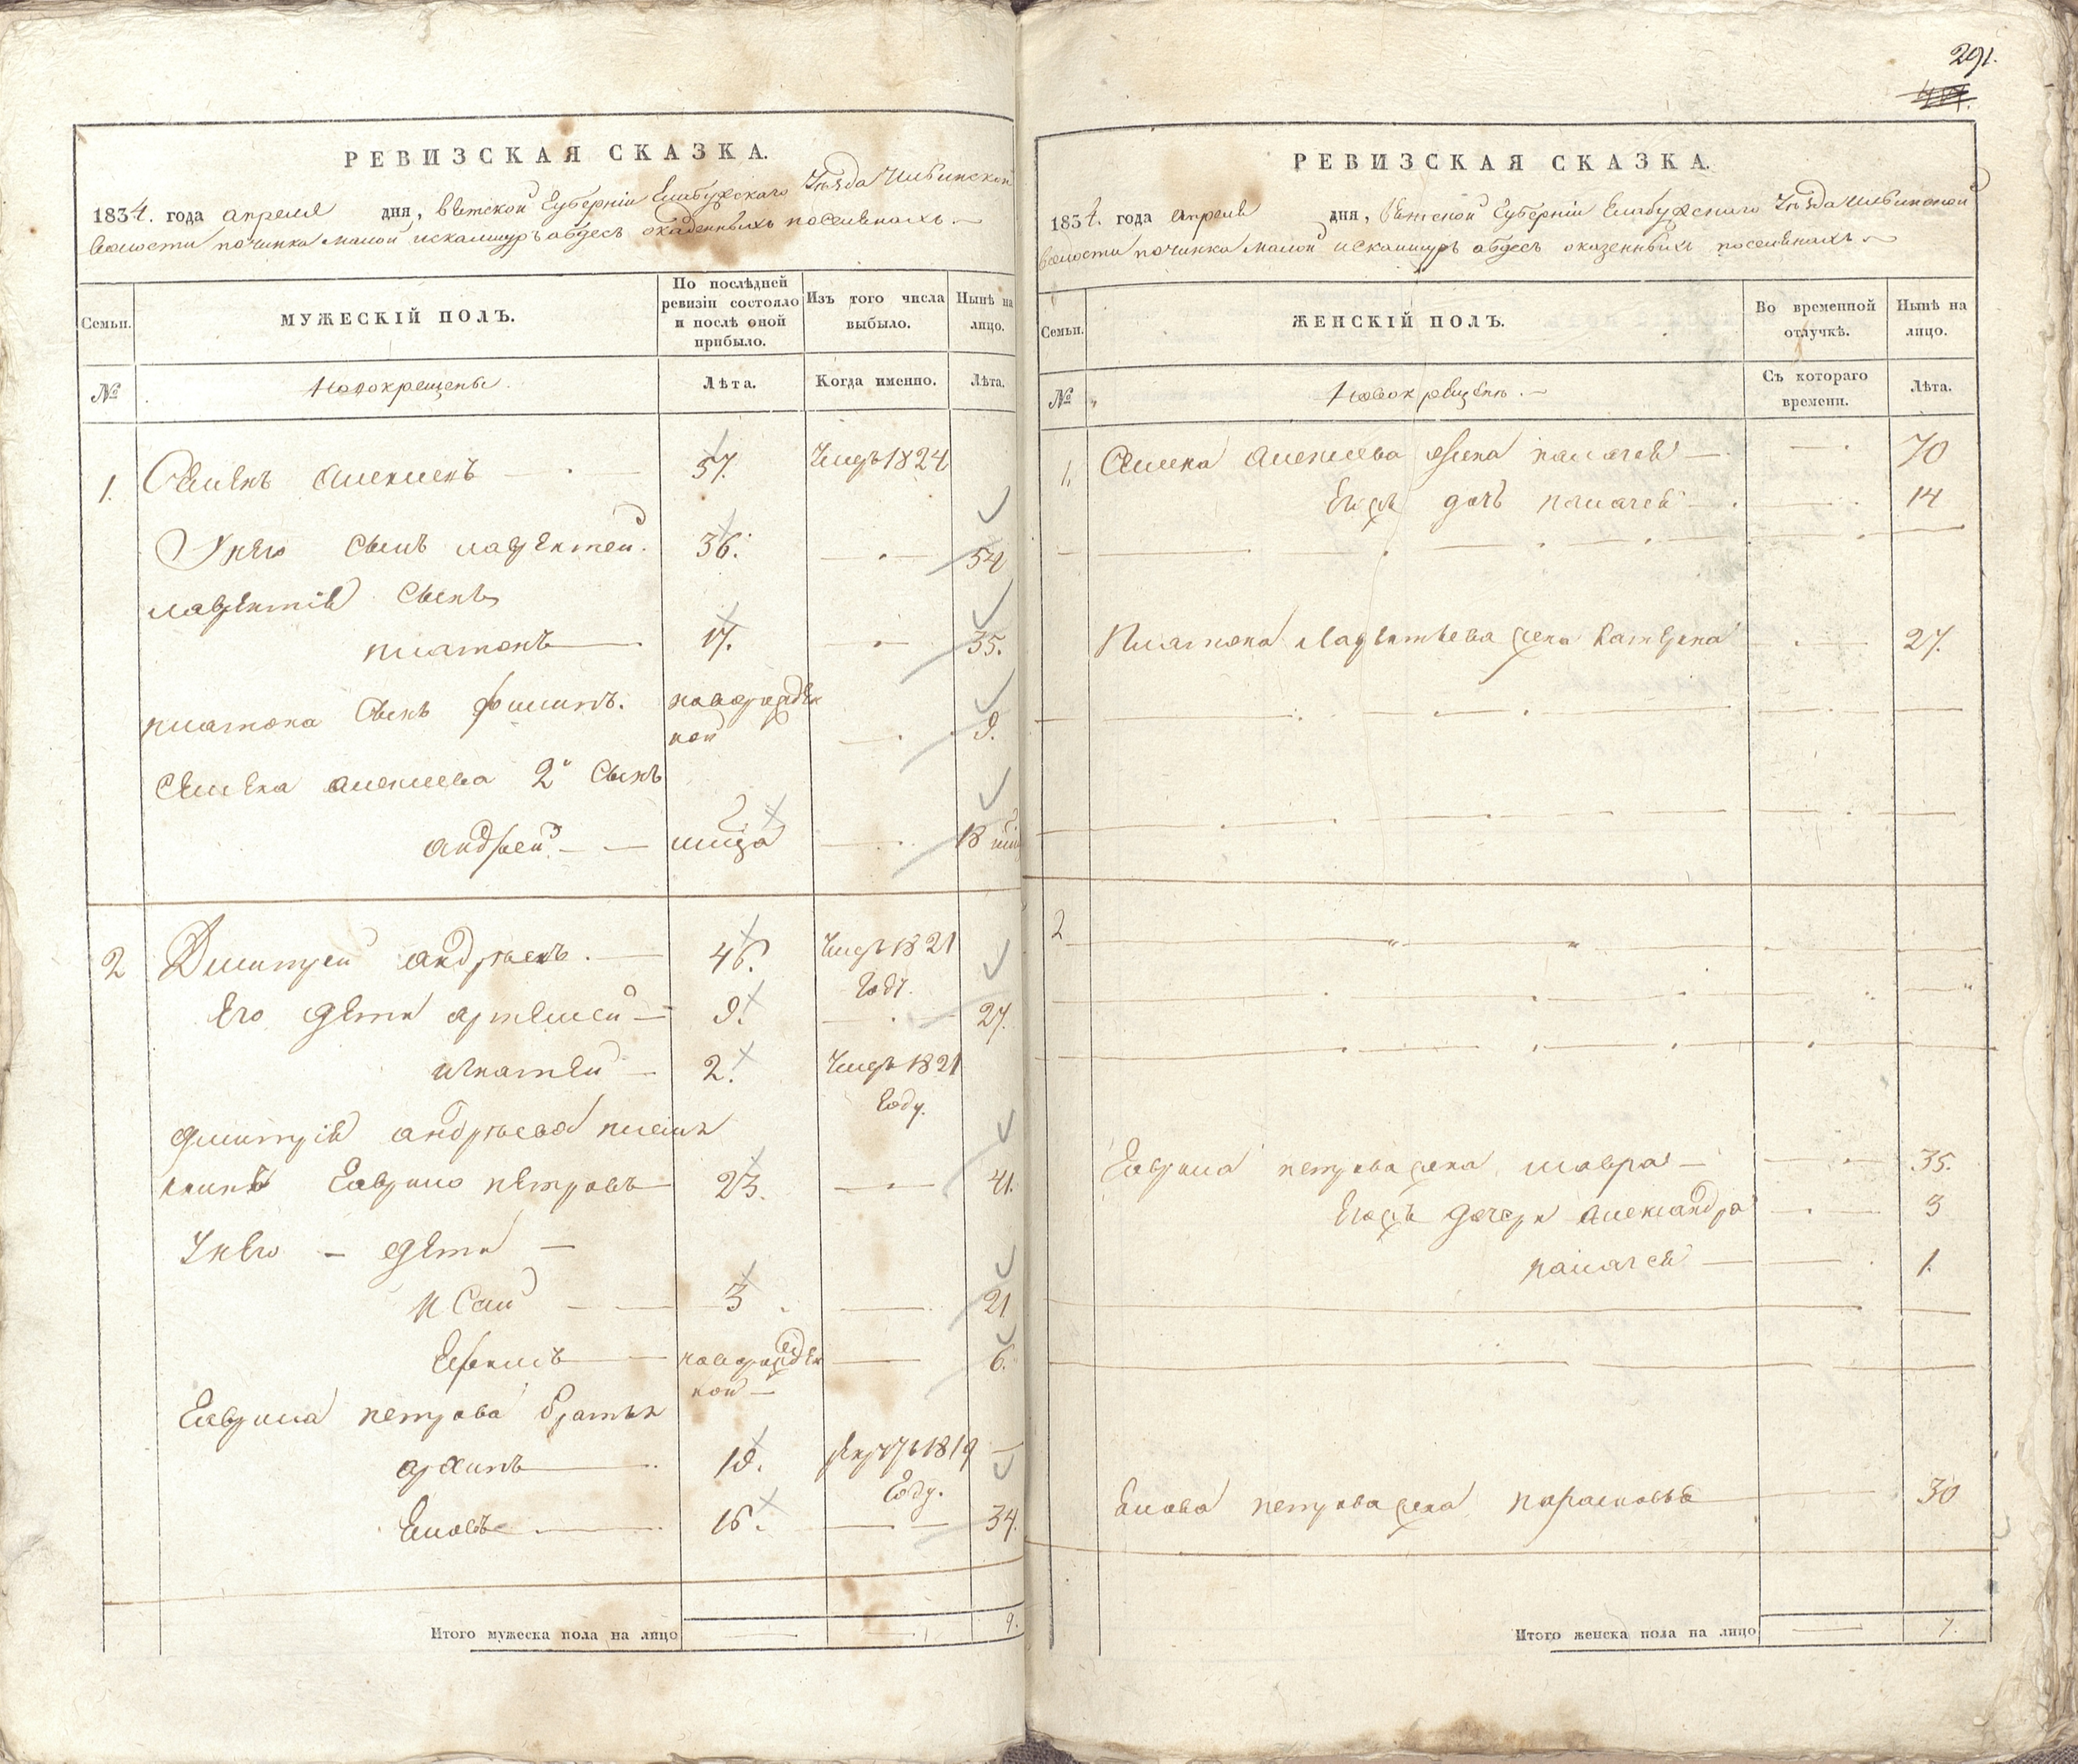 РЕВИЗСКАЯ СКАЗКА.
1834. года апреля дня, вятской Губерніи Елабужскаго Уѣзда Ильинской
волости починка малой искалмуръ абдесъ оказенныхъ поселянахъ.
Семьи.
МУЖЕСКІЙ ПОЛЪ.
По послѣдней ревизіи состояло и послѣ оной прибыло.
Изъ того числа выбыло.
Нынѣ на лицо.
№
Новокрещены.
Лѣта.
Когда именно.
Лѣта.
1. Семенъ алексеевъ 57. Умеръ 1824
У него сынъ лаврентей. 36. 54
лаврентія сынъ
платонъ 17. 35.
платона сынъ филипъ. новорожден
ной 9.
Семена алексеева 2й сынъ
андрей 18
2 Дмитрей андреевъ. 46. Умеръ 1821
Году.
Его дети артемей 9. 27.
игнатей 2. Умеръ 1821
Году.
дмитрія андреева племян
никъ Гаврило петровъ 23. 41.
У него дети
исай 3 21
Ефимъ новорожден 6.
ной
Гаврила петрова братья
архипъ 18. рекрутъ 1819
Году.
Иовъ 16. 34.
Итого мужеска пола на лицо 9.
291.
РЕВИЗСКАЯ СКАЗКА.
1834. года апреля дня, вятской Губерніи Елабужскаго Уѣзда Ильинской
волости починка малой искалмуръ абдесъ оказенныхъ поселянахъ
Семьи.
ЖЕНСКІЙ ПОЛЪ.
Во временной отлучкѣ.
Нынѣ на лицо.
№
Новокрещены.
Съ котораго времени.
Лѣта.
1. Семена алексеева жена палагея 70
Ево дочь палагея 14
Платона Лаврентьева жена катерина 27.
2
Гаврила петрова жена мавра 35.
Евожъ дочери александра 3
палагея 1.
петрова жена парасковья 30
Итого женска пола на лицо 7.